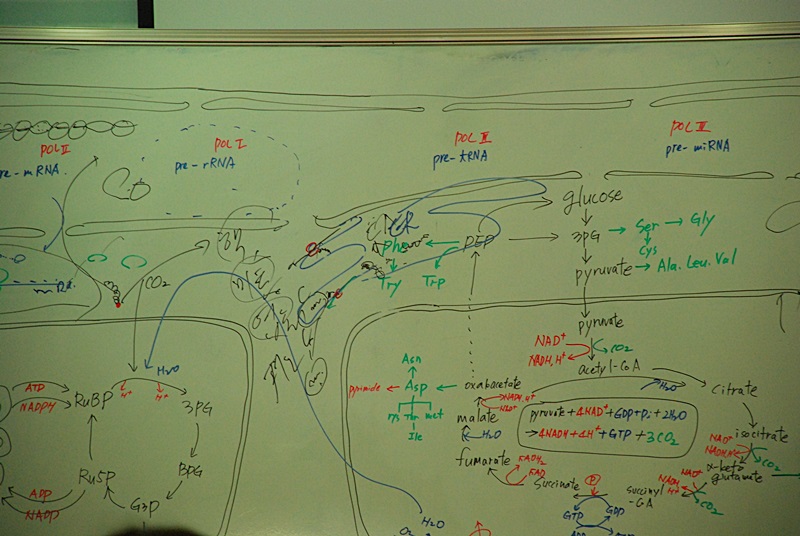 POL II
pre-mRNA
POL I
pre-rRNA
POL III
pre-tRNA
POL III
pre-miRNA
glucose
3PG
Ser
Gly
Cys
pyruvate
Ala. Leu. Val
Phe
PEP
Try
Trp
CO2
H2O
ATP
NADPH
RuBP
H+
H+
3PG
BPG
G3P
Ru5P
ADP
NADP
pyruvate
NAD+
NADH, H+
CO2
acetyl-CoA
H2O
citrate
isocitrate
NAD+
CO2
α-keto
glutamate
NAD+
NADH
H+
CO2
succinyl
-CoA
Succinate
P
GTP
GDP
ADP
FADH2
FAD
fumarate
H2O
malate
oxaloacetate
Asn
Asp
pyrimide
lys Thr met
Ile
pyruvate + 4NAD+ + GDP + Pi + 2H2O
→ 4NADH + 4H+ + GTP + 3CO2
H2O
O2